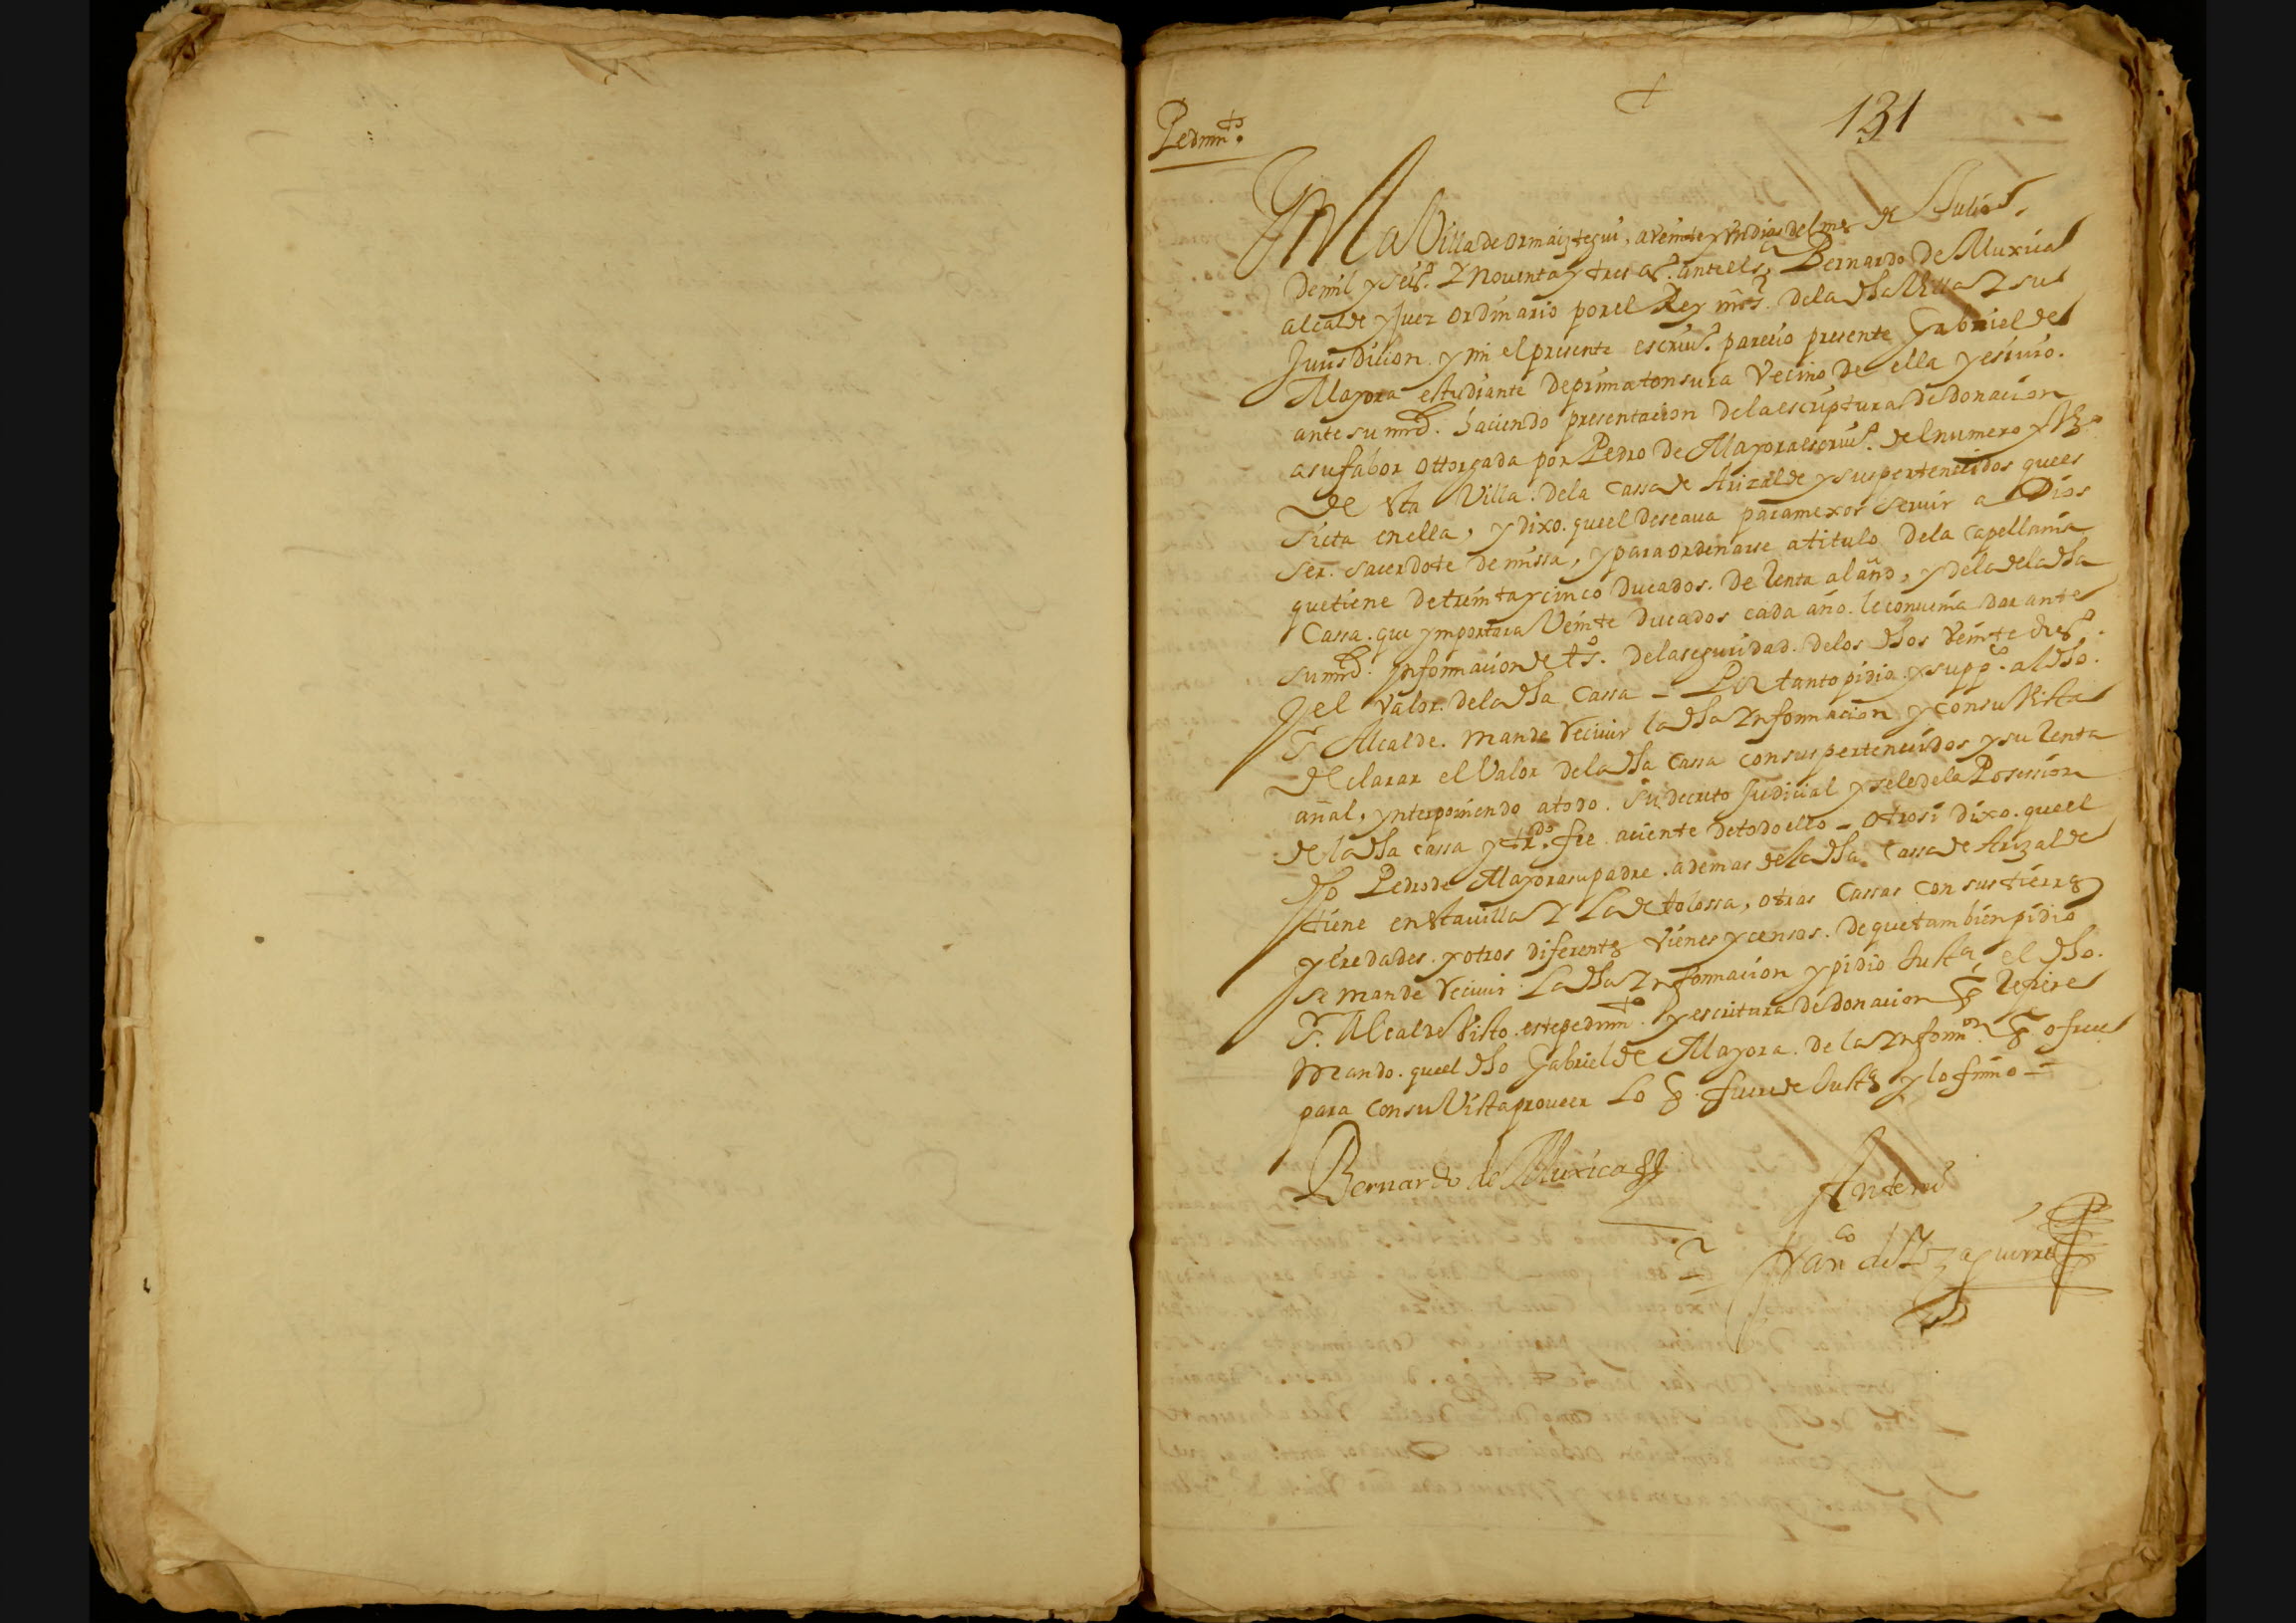 +
131
Pedimto.
En la Villa de ormaiztegui, a veinte y un dias del mes de Julio
de mil y seiso. y noventa y tres as. ante el sr. Bernardo de Muxica
alcalde y Juez ordinario por el Rey nro sr. de la dha Villa y su
Jurisdicion. y mi el presente escriuo. parecio presente Gabriel de
Mayora estudiante de prima tonsura vecino de ella y esiuio.
ante su mrd. haciendo presentacion de la escriptura de donacion
a su fabor ottorgada por Pedro de Mayora escriuo. del numero y vzo.
de esta Villa. de la cassa de Arizalde y sus pertenecidos que es
sicta en ella, y dixo. que el deseaua para mexor seruir a Dios
ser. sacerdote de missa, y para ordenarse a titulo de la capellania
que tiene de treinta y cinco ducados. de renta al año, y de la de la dha
Cassa. que ymportara Veinte ducados cada año. le conuenia dar ante
su mrd. ynformacion de tos. de la seguridad. de los dhos veinte dus.
y el valor. de la dha cassa - Por tanto pidio y suppco. al dho.
sr Alcalde. mande reciuir la dha ynformacion y con su vista
declarar el Valor de la dha cassa con sus pertenecidos y su renta
añal, ynterponiendo a todo. su decreto Judicial y se le de la Posession
de la dha cassa y trdo. fee aciente de todo ello - otrosi dixo. que el
dho Pedro de Mayora su padre. ademas de la dha. cassa de Arizalde
tiene en esta uilla y la de tolossa, otras Cassas con sus tierras
y eredades. y otros diferentes vienes y censos. de que tambien pidio
se mande reciuir. la dha ynformacion y pidio Justa, el dho.
sr. Alcalde visto. este pedimto. y escritura de donacion q refiere
mando. que el dho Gabriel de Mayora. de la ynformon. q ofrece
para con su Vista proueer lo q. fuere de Justa y lo firmo -
Bernardo de Muxica
Ante mi
Franco de Yzaguirre